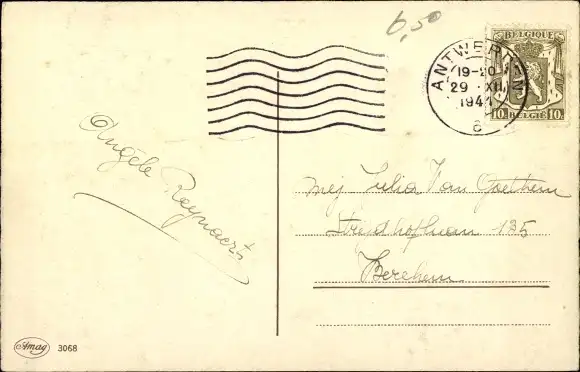 6,50
BELGIQUE
ANTWERPEN
19-20
29 XII
1941
6
10 BELGIË 10
Angèle Reynaert
Mej Julia Van Goethem
Strijdhoflaan 135
Berchem
Amag 3068